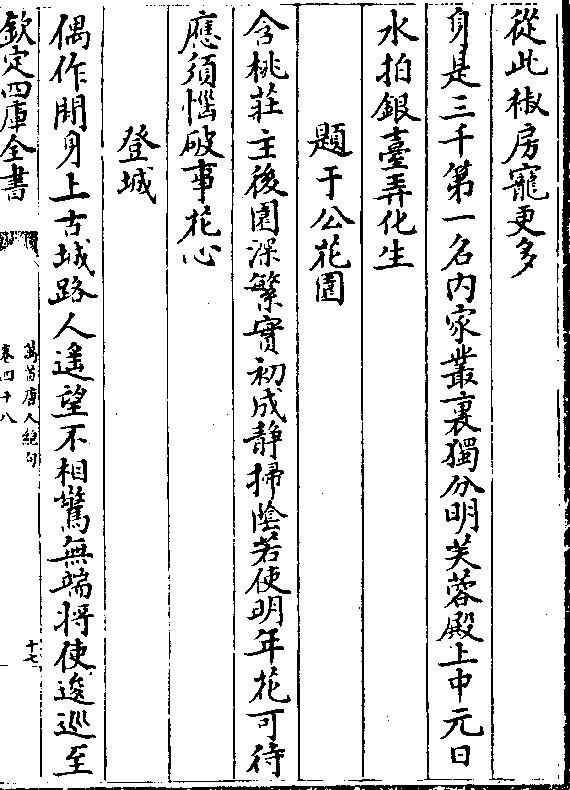 從此椒房寵更多
身是三千第一名内家叢裏獨分明芙蓉殿上中元日
水拍銀臺弄化生
題于公花園
含桃莊主後園深繁實初成静掃陰若使明年花可待
應須惱破事花心
登城
偶作閒身上古城路人遥望不相驚無端將使逡巡至
欽定四庫全書
萬首唐人絶句
卷四十八
十七